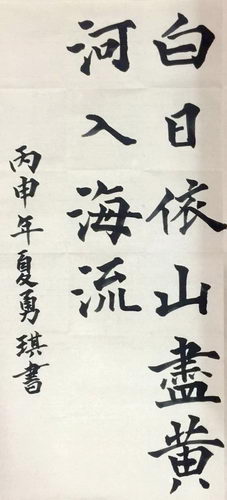 白日依山盡黄
河入海流
丙申年夏勇琪書